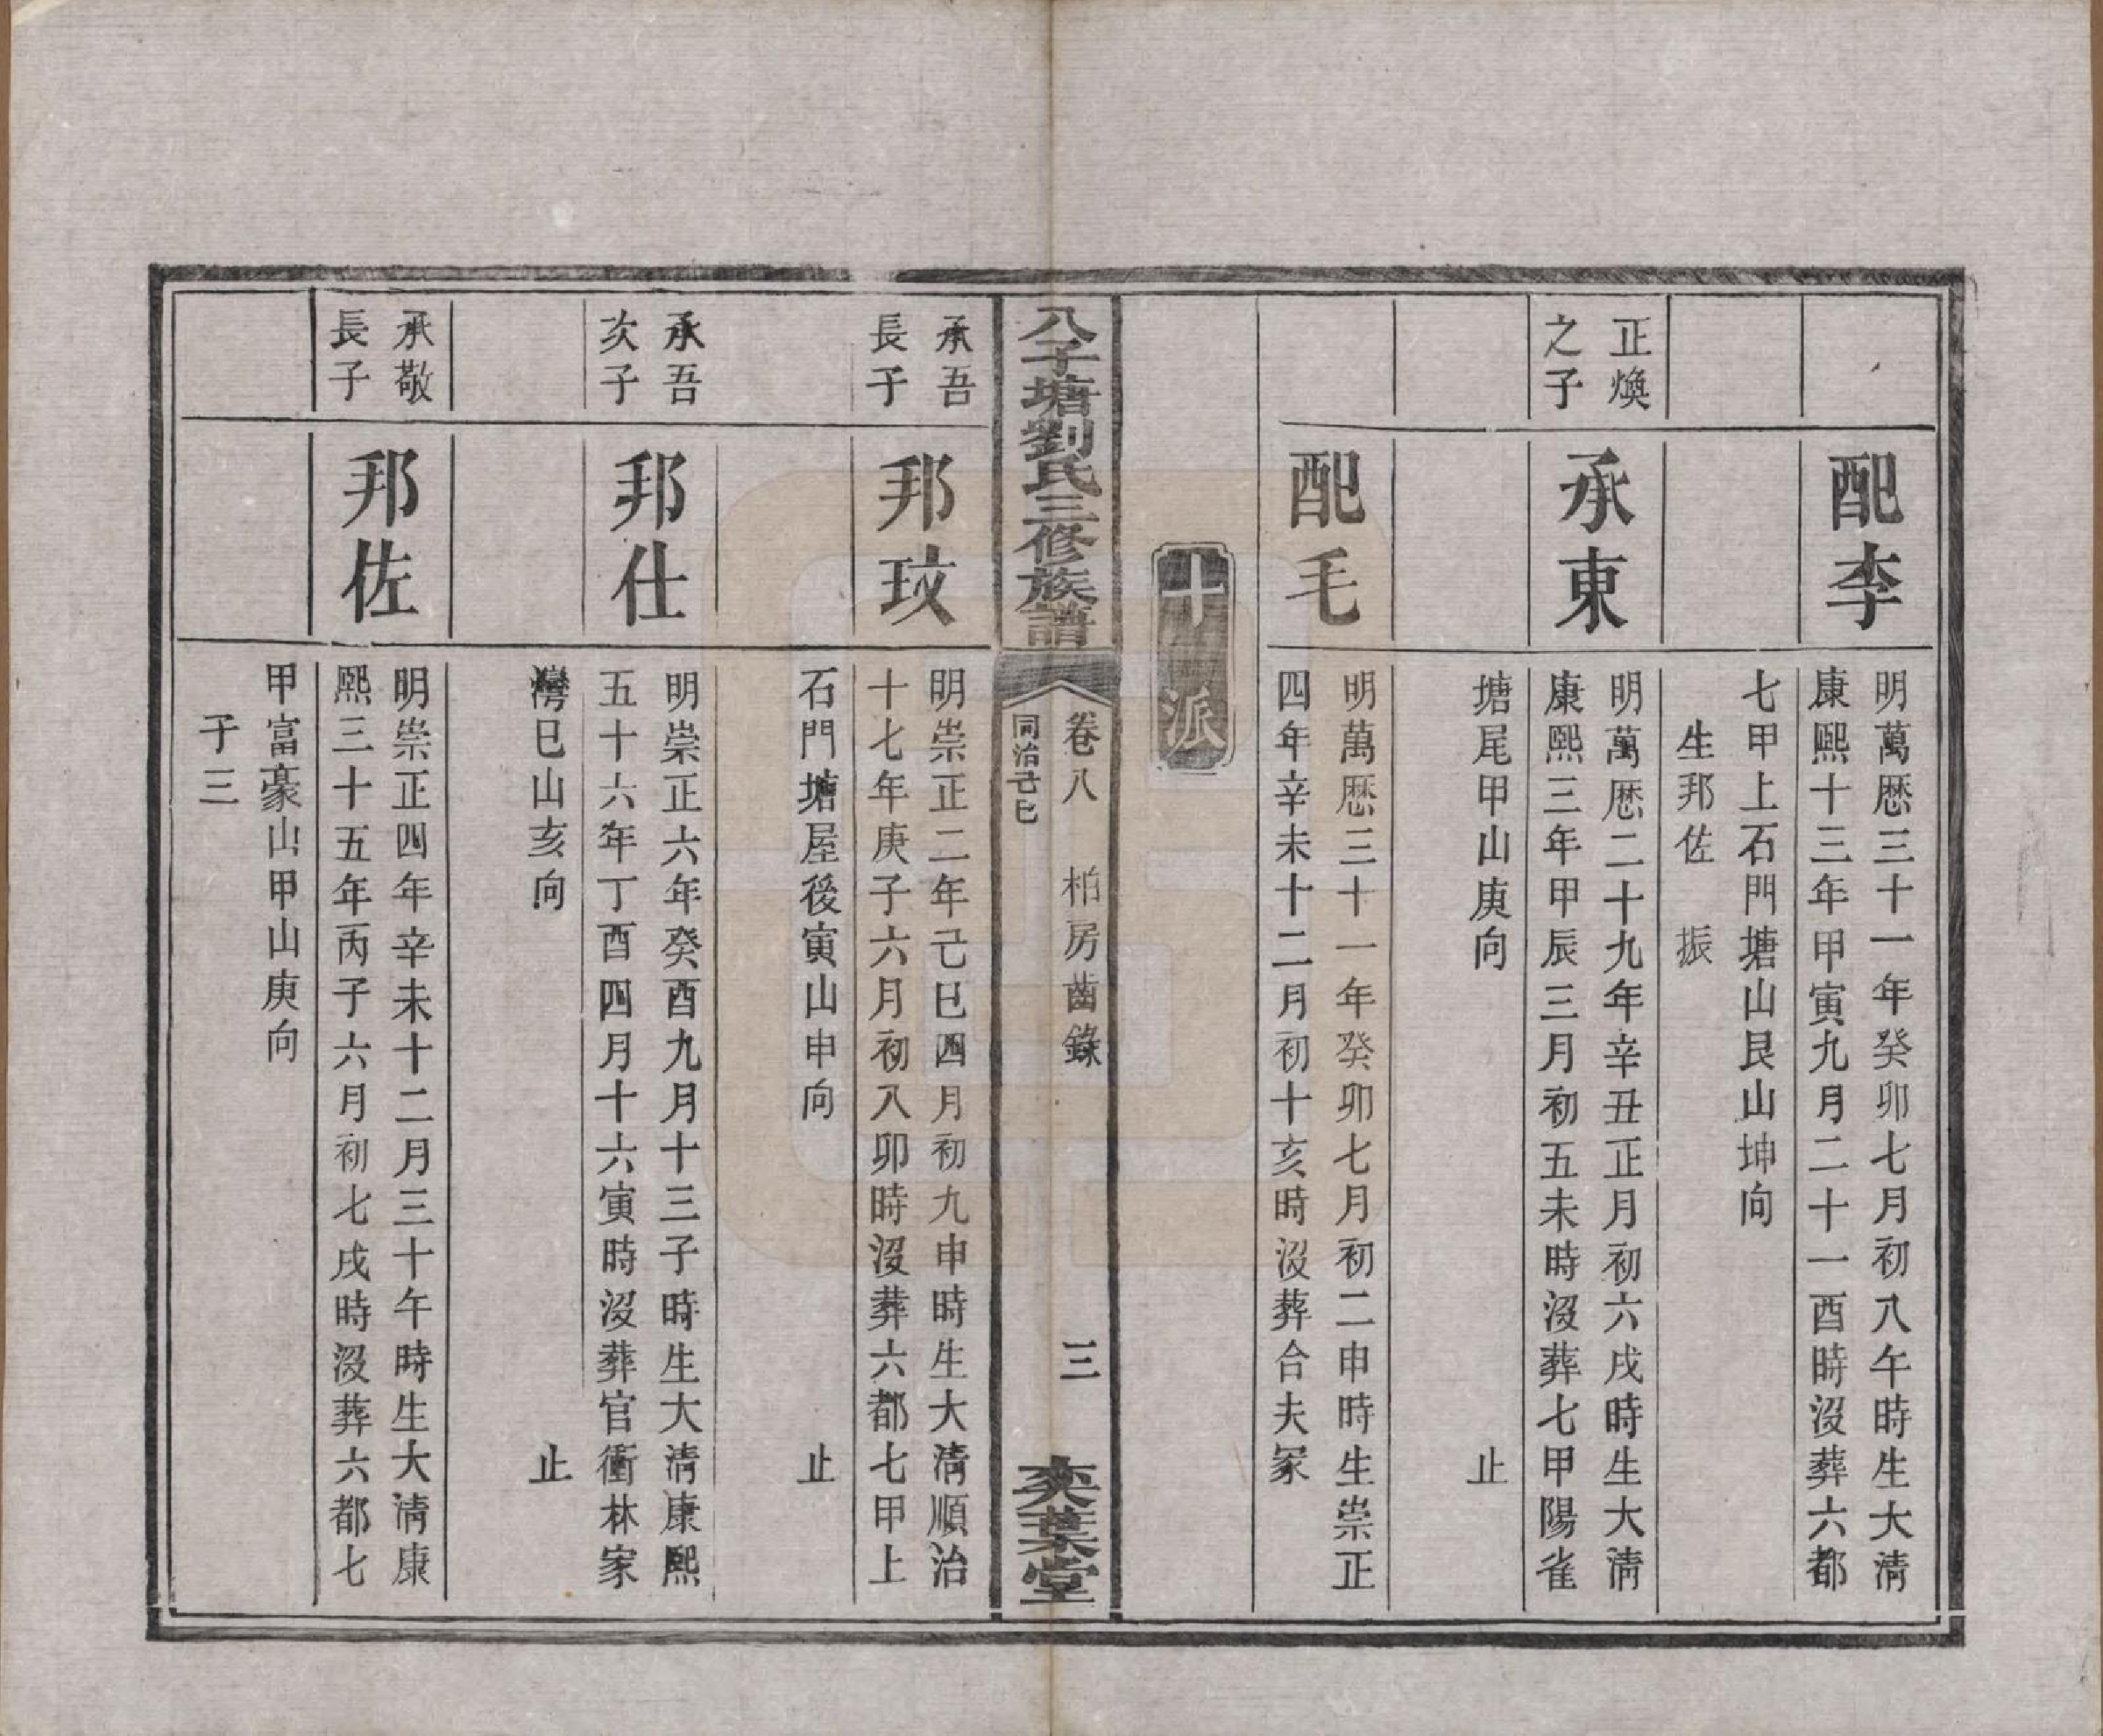 配李
明萬厯三十一年癸卯七月初八午時生大清
康熙十三年甲寅九月二十一酉時沒葬六都
七甲上石門塘山艮山坤向
生邦佐　振
正煥
之子
承東
明萬厯二十九年辛丑正月初六戌時生大清
康熙三年甲辰三月初五未時沒葬七甲陽雀
塘尾甲山庚向　止
配毛
明萬厯三十一年癸卯七月初二申時生崇正
四年辛未十二月初十亥時沒葬合夫冢
十派
八子塘劉氏三修族譜
卷八　柏房齒錄　三
同治己巳
奕葉堂
承吾
長子
邦玟
明崇正二年己巳四月初九申時生大清順治
十七年庚子六月初八卯時沒葬六都七甲上
石門塘屋後寅山申向　止
承吾
次子
邦仕
明崇正六年癸酉九月十三子時生大清康熙
五十六年丁酉四月十六寅時沒葬官衝林家
灣巳山亥向　止
承敬
長子
邦佐
明崇正四年辛未十二月三十午時生大清康
熙三十五年丙子六月初七戌時沒葬六都七
甲富豪山甲山庚向
子三